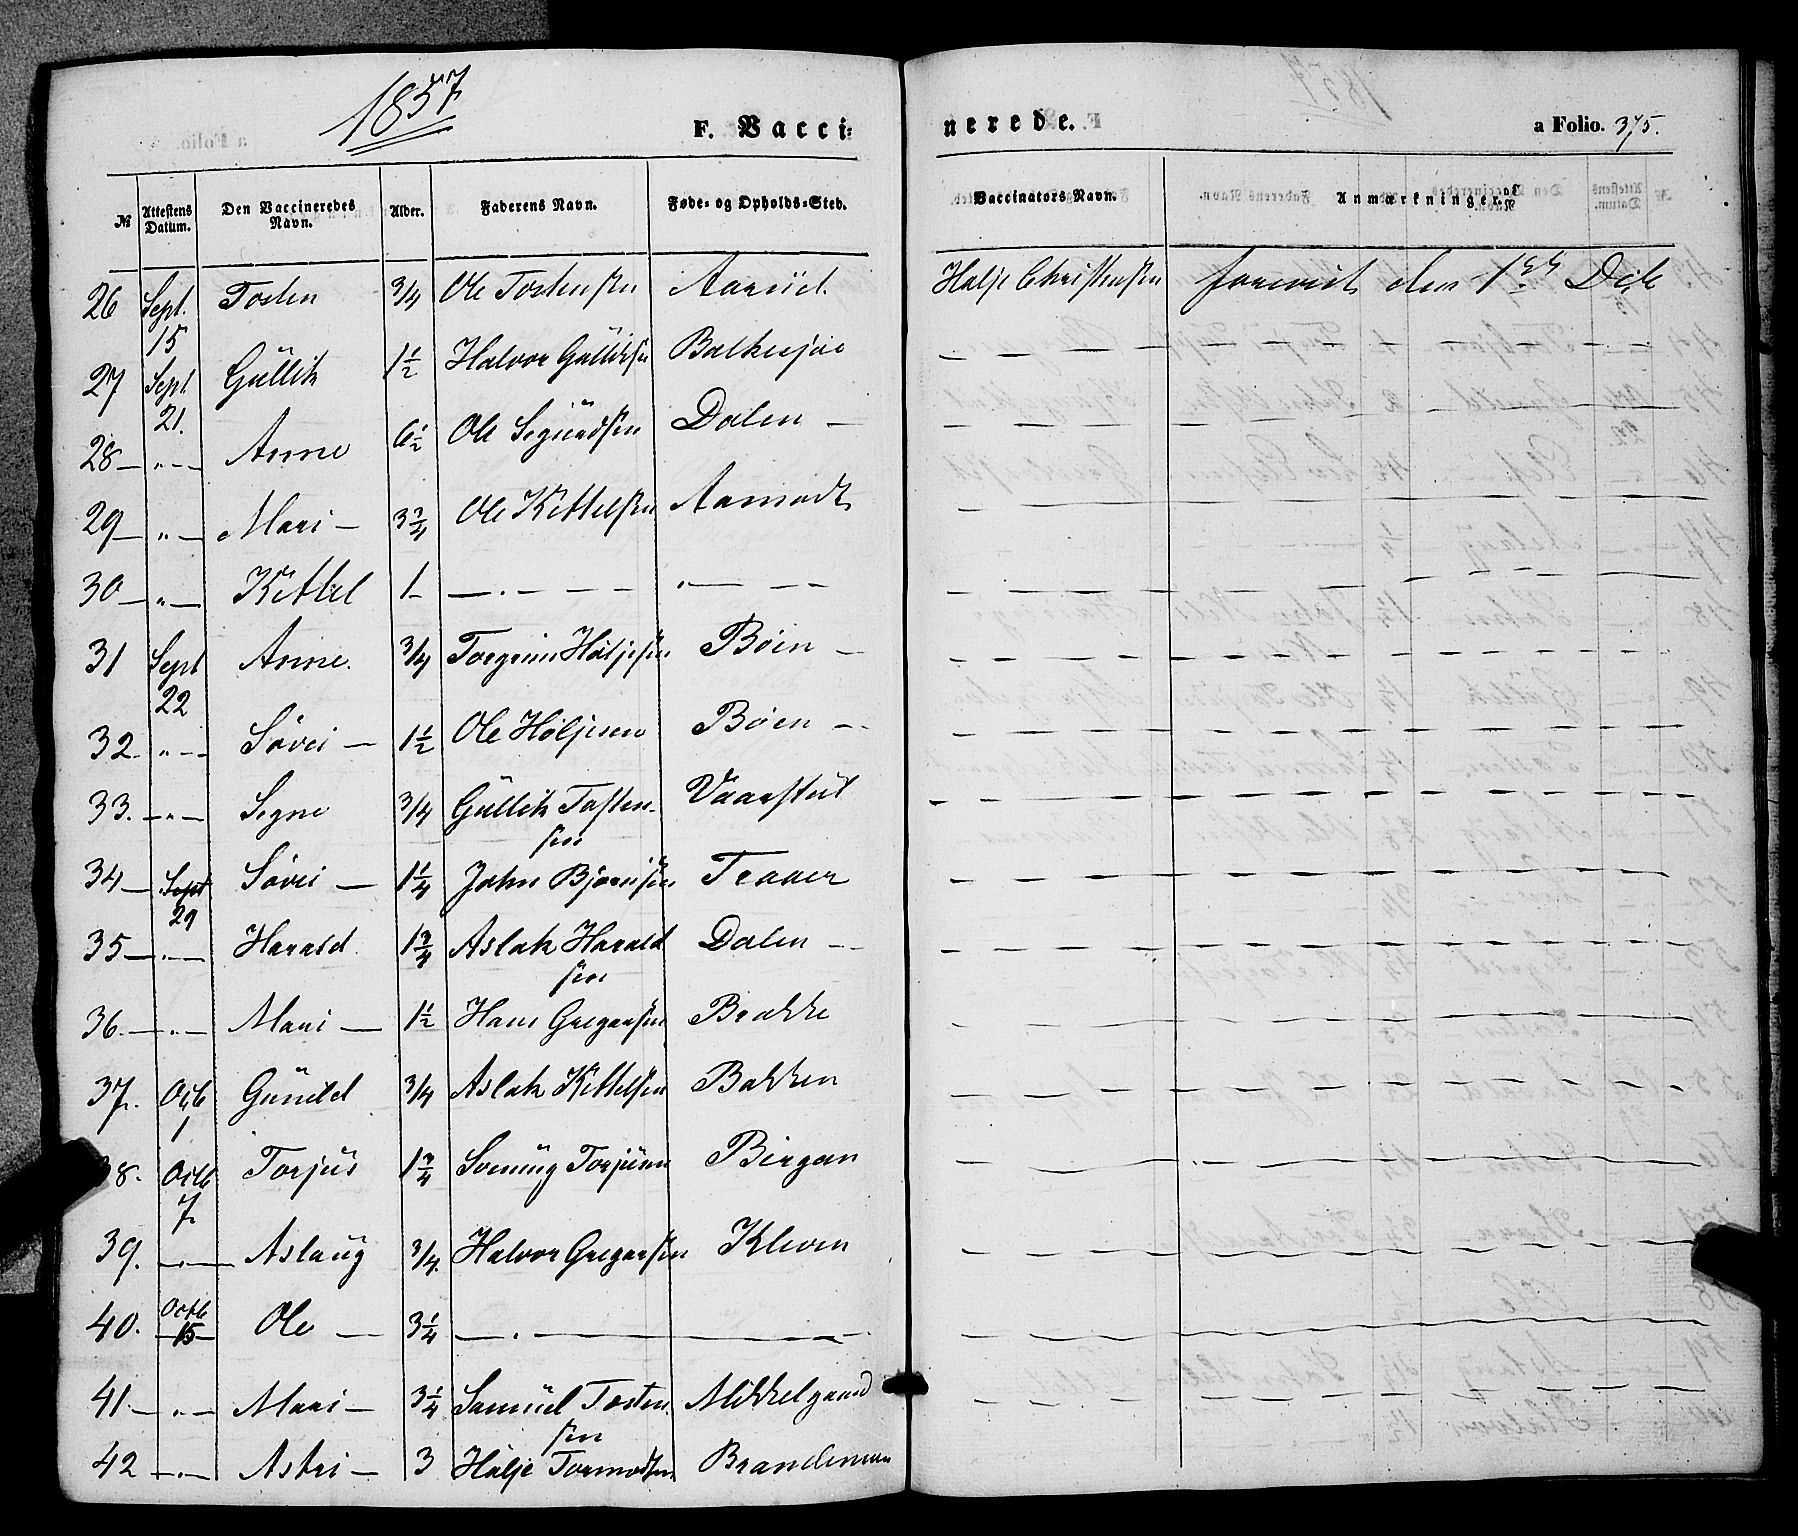 1857
F. Vacci=
nerede.
a Folio. 375.
№ Attestens Datum. Den Vaccineredes Navn. Alder. Faderens Navn. Føde= og Opholds=Sted. Vaccinators Navn. Anmærkninger.
26 Sept. 15 Tosten 3/4 Ole Tostensen Aarüd Holje Christensen forevist den 1ste Dcb
27 Sept 21. Güllik 1 1/2 Halvor Gulliksen Bolkesjøe — — —
28 — „ — Anne 6 1/2 Ole Sigurdsen Dalen — — — —
29 — „ — Mari — 3 3/4 Ole Kittelsen Aamodt — — —
30 — „ — Kittel 1 — — . — — — „ — — — — —
31 Sept 22 Anne. 3/4 Torgrim Høljesen Bøen — — — —
32. „ — Søvei — 1 1/2 Ole Høljesen Bøen — — — —
33. — „ — Segne 3/4 Güllik Tosten- Vaarstül — — —
sen
34 — Sept 29 Søvei — 1 1/4 John Bjørnsen Traaer — — —
35 — „ — Harald 1 3/4 Aslak Harald Dalen — — — —
sen
36. — „ — Mari — 1 1/2 Hans Gregarsen Brække — — —
37. Octb 1 Günild 3/4 Aslak Kittelsen Bakken — — —
38. Octb 7. Torjüs 1 3/4 Sveinüng Torjüsen Bergan — — —
39. — „ — Aslaüg 3/4. Halvor Gregarsen Kleven — — —
40. Octb 15 Ole — 3 1/4 — . — — — — — —
41. — „ — Mari — 3 1/4 Samüel Tosten Mikkelgaard — — —
sen
42 — „ — Astri — 3 Hølje Tormodsen